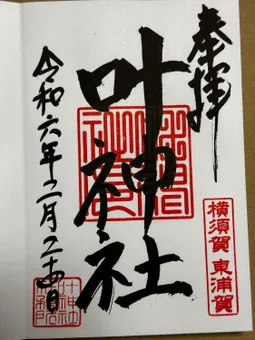 奉拝
叶神社
横須賀 東浦賀
令和六年二月二十四日